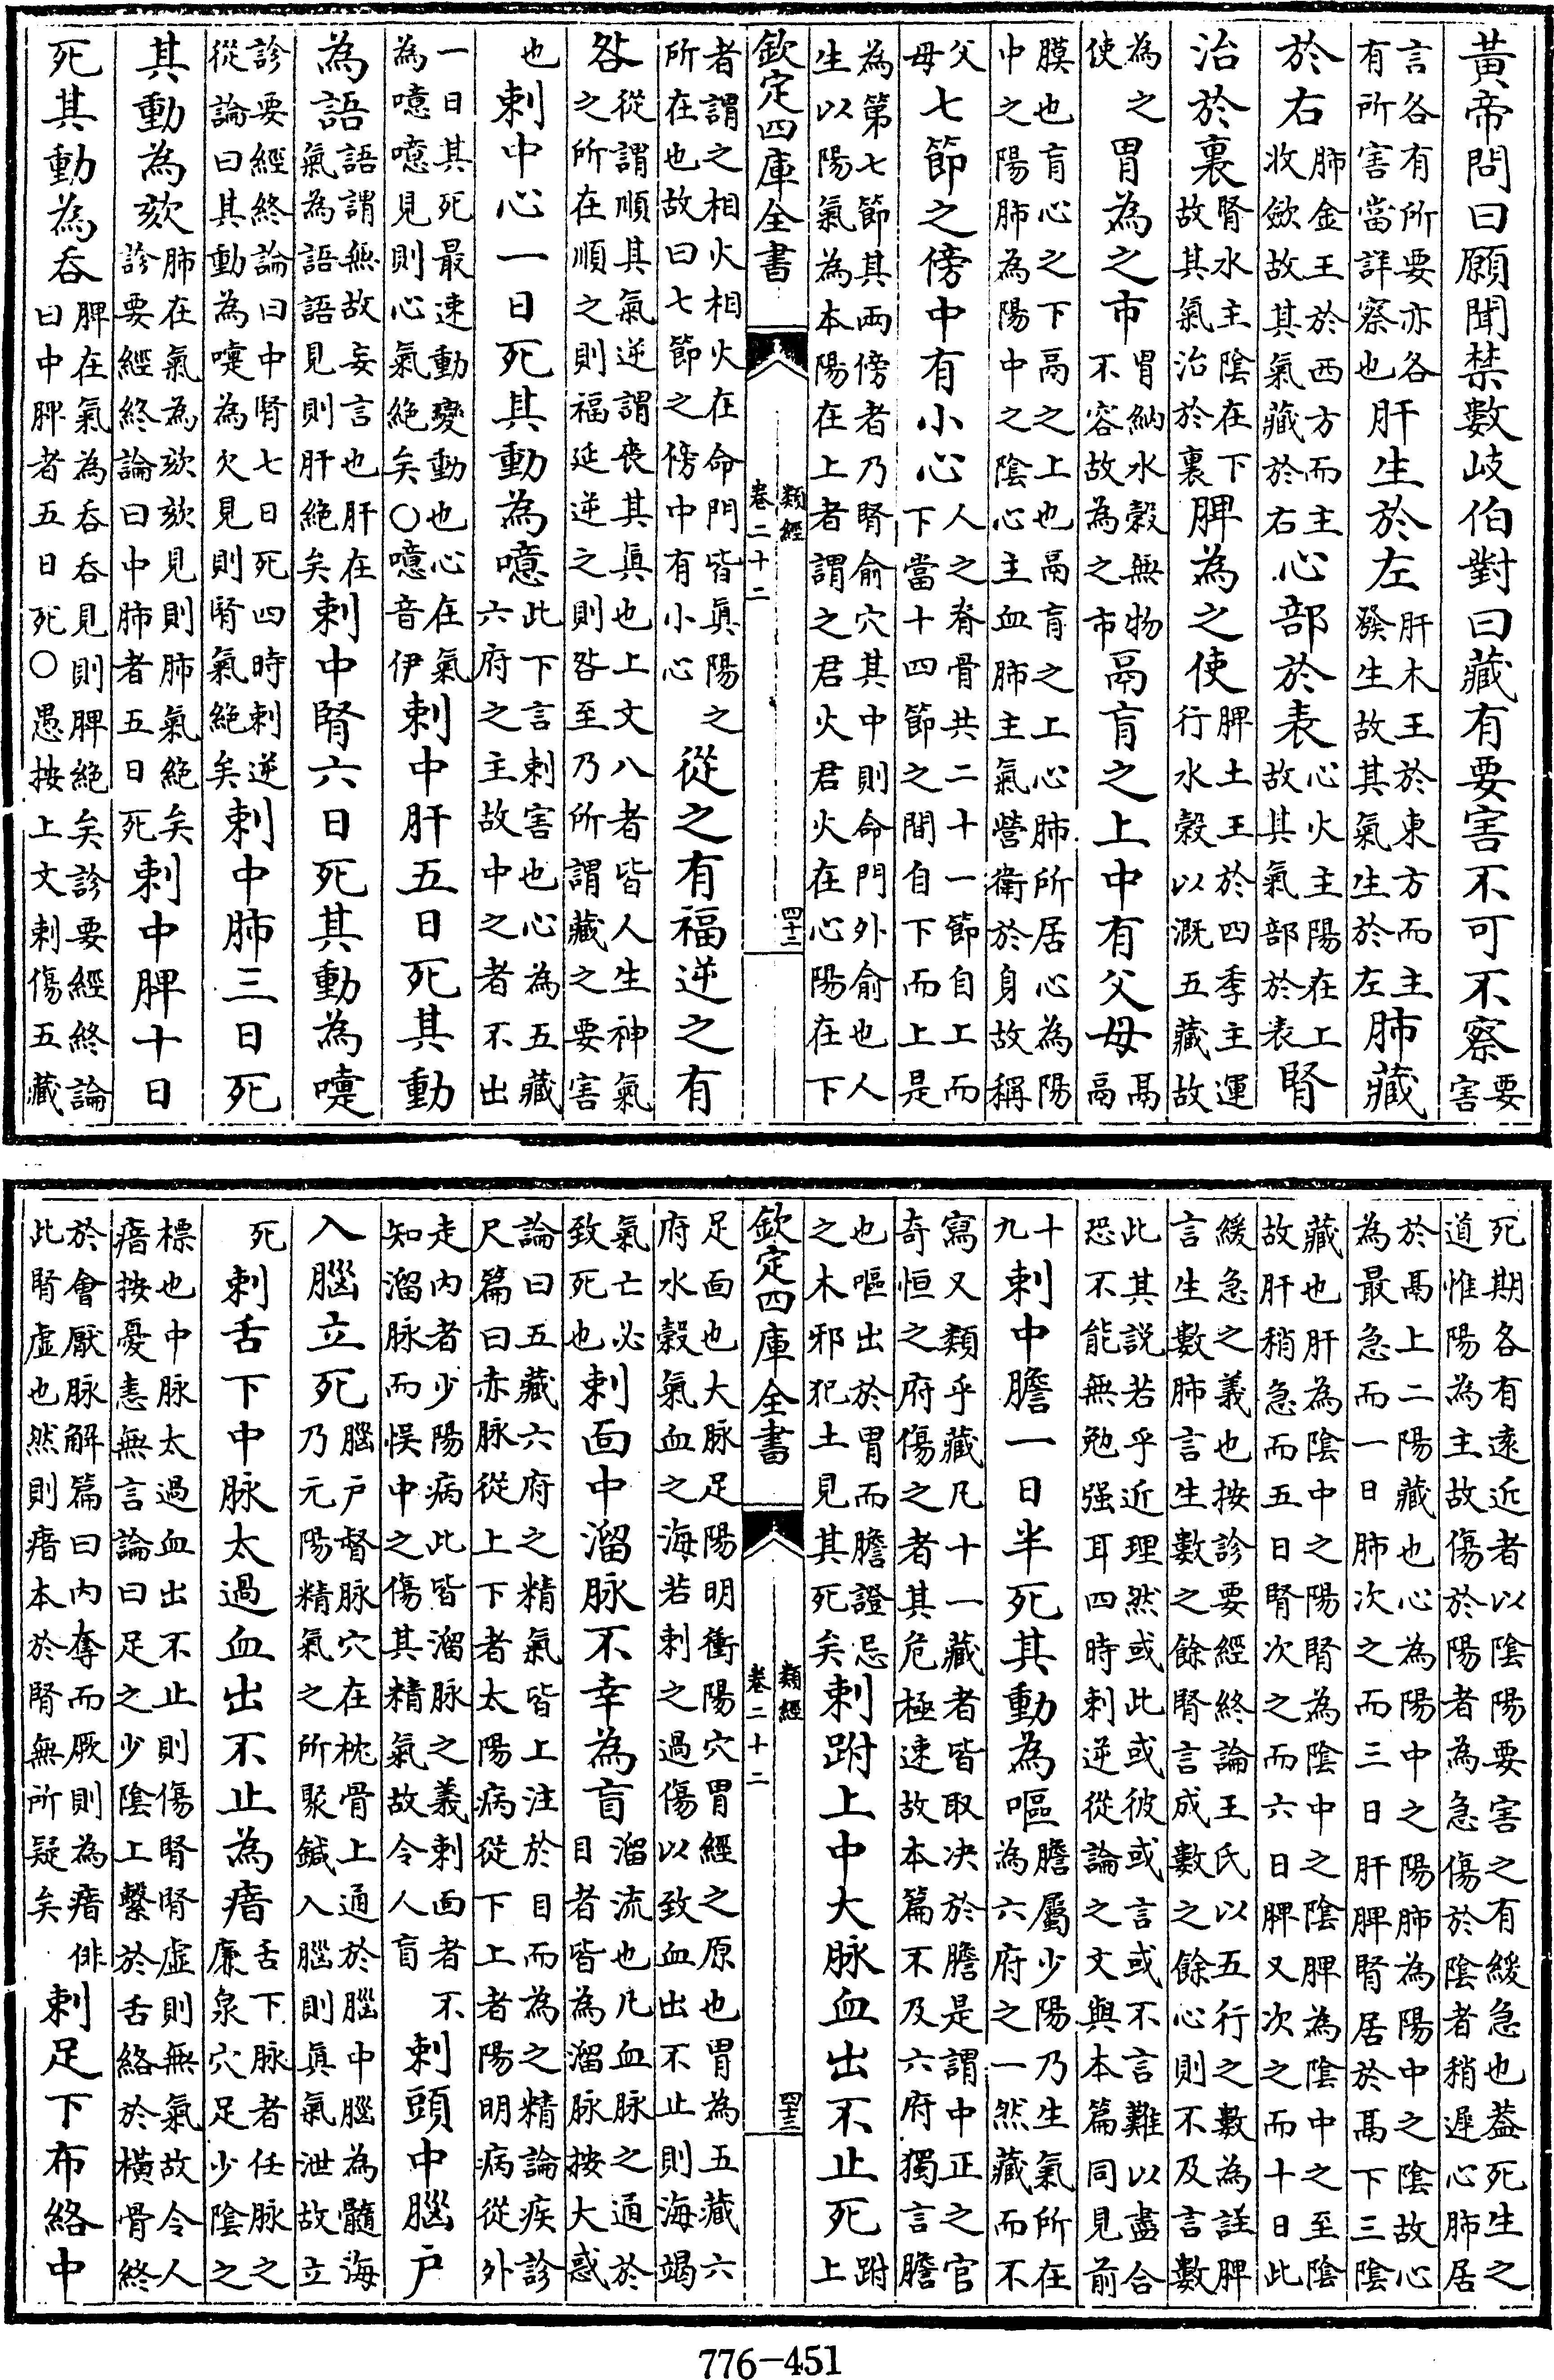 黃帝問曰願聞禁數歧伯對曰藏有要害不可不察要害
言各有所要亦各有所害當詳察也肝生於左肝木王於東方而主發生故其氣生於左肺藏
於右肺金王於西方而主收斂故其氣藏於右心部於表心火主陽在上故其氣部於表腎
治於裏腎水主陰在下故其氣治於裏脾為之使脾土王於四季主運行水穀以溉五藏故
為之使胃為之市胃納水穀無物不容故為之市鬲肓之上中有父母鬲鬲
膜也肓心之下鬲之上也鬲肓之上心肺所居心為陽中之陽肺為陽中之陰心主血肺主氣營衛於身故稱
父母七節之傍中有小心人之脊骨共二十一節自上而下當十四節之間自下而上是
為第七節其兩傍者乃腎俞穴其中則命門外俞也人生以陽氣為本陽在上者謂之君火君火在心陽在下
欽定四庫全書 類經 卷二十二 四十二
者謂之相火相火在命門皆眞陽之所在也故曰七節之傍中有小心從之有福逆之有
咎從謂順其氣逆謂喪其眞也上文八者皆人生神氣之所在順之則福延逆之則咎至乃所謂藏之要害
也刺中心一日死其動為噫此下言刺害也心為五藏六府之主故中之者不出
一日其死最速動變動也心在氣為噫噫見則心氣絶矣○噫音伊刺中肝五日死其動
為語語謂無故妄言也肝在氣為語語見則肝絶矣刺中腎六日死其動為嚏
診要經終論曰中腎七日死四時刺逆從論曰其動為嚏為欠見則腎氣絶矣刺中肺三日死
其動為欬肺在氣為欬欬見則肺氣絶矣診要經終論曰中肺者五日死刺中脾十日
死其動為吞脾在氣為吞吞見則脾絶矣診要經終論曰中脾者五日死○愚按上文刺傷五藏
死期各有遠近者以陰陽要害之有緩急也葢死生之道惟陽為主故傷於陽者為急傷於陰者稍遲心肺居
於鬲上二陽藏也心為陽中之陽肺為陽中之陰故心為最急而一日肺次之而三日肝脾腎居於鬲下三陰
藏也肝為陰中之陽腎為陰中之陰脾為陰中之至陰故肝稍急而五日腎次之而六日脾又次之而十日此
緩急之義也按診要經終論王氏以五行之數為註脾言生數肺言生數之餘腎言成數之餘心則不及言數
此其説若乎近理然或此或彼或言或不言難以盡合恐不能無勉强耳四時刺逆從論之文與本篇同見前
十九刺中膽一日半死其動為嘔膽屬少陽乃生氣所在為六府之一然藏而不
寫又類乎藏凡十一藏者皆取决於膽是謂中正之官奇恒之府傷之者其危極速故本篇不及六府獨言膽
也嘔出於胃而膽證忌之木邪犯土見其死矣刺跗上中大脉血出不止死跗上
欽定四庫全書 類經 卷二十二 四十三
足面也大脉足陽明衝陽穴胃經之原也胃為五藏六府水穀氣血之海若刺之過傷以致血出不止則海竭
氣亡必致死也刺面中溜脉不幸為盲溜流也凡血脉之通於目者皆為溜脉按大惑
論曰五藏六府之精氣皆上注於目而為之精論疾診尺篇曰赤脉從上下者太陽病從下上者陽明病從外
走内者少陽病此皆溜脉之義刺面者不知溜脉而悞中之傷其精氣故令人盲刺頭中腦户
入腦立死腦户督脉穴在枕骨上通於腦中腦為髓海乃元陽精氣之所聚鍼入腦則眞氣泄故立
死刺舌下中脉太過血出不止為瘖舌下脉者任脉之廉泉穴足少陰之
標也中脉太過血出不止則傷腎腎虛則無氣故令人瘖按憂恚無言論曰足之少陰上繫於舌絡於橫骨終
於會厭脉解篇曰内奪而厥則為瘖俳此腎虛也然則瘖本於腎無所疑矣刺足下布絡中
776-451